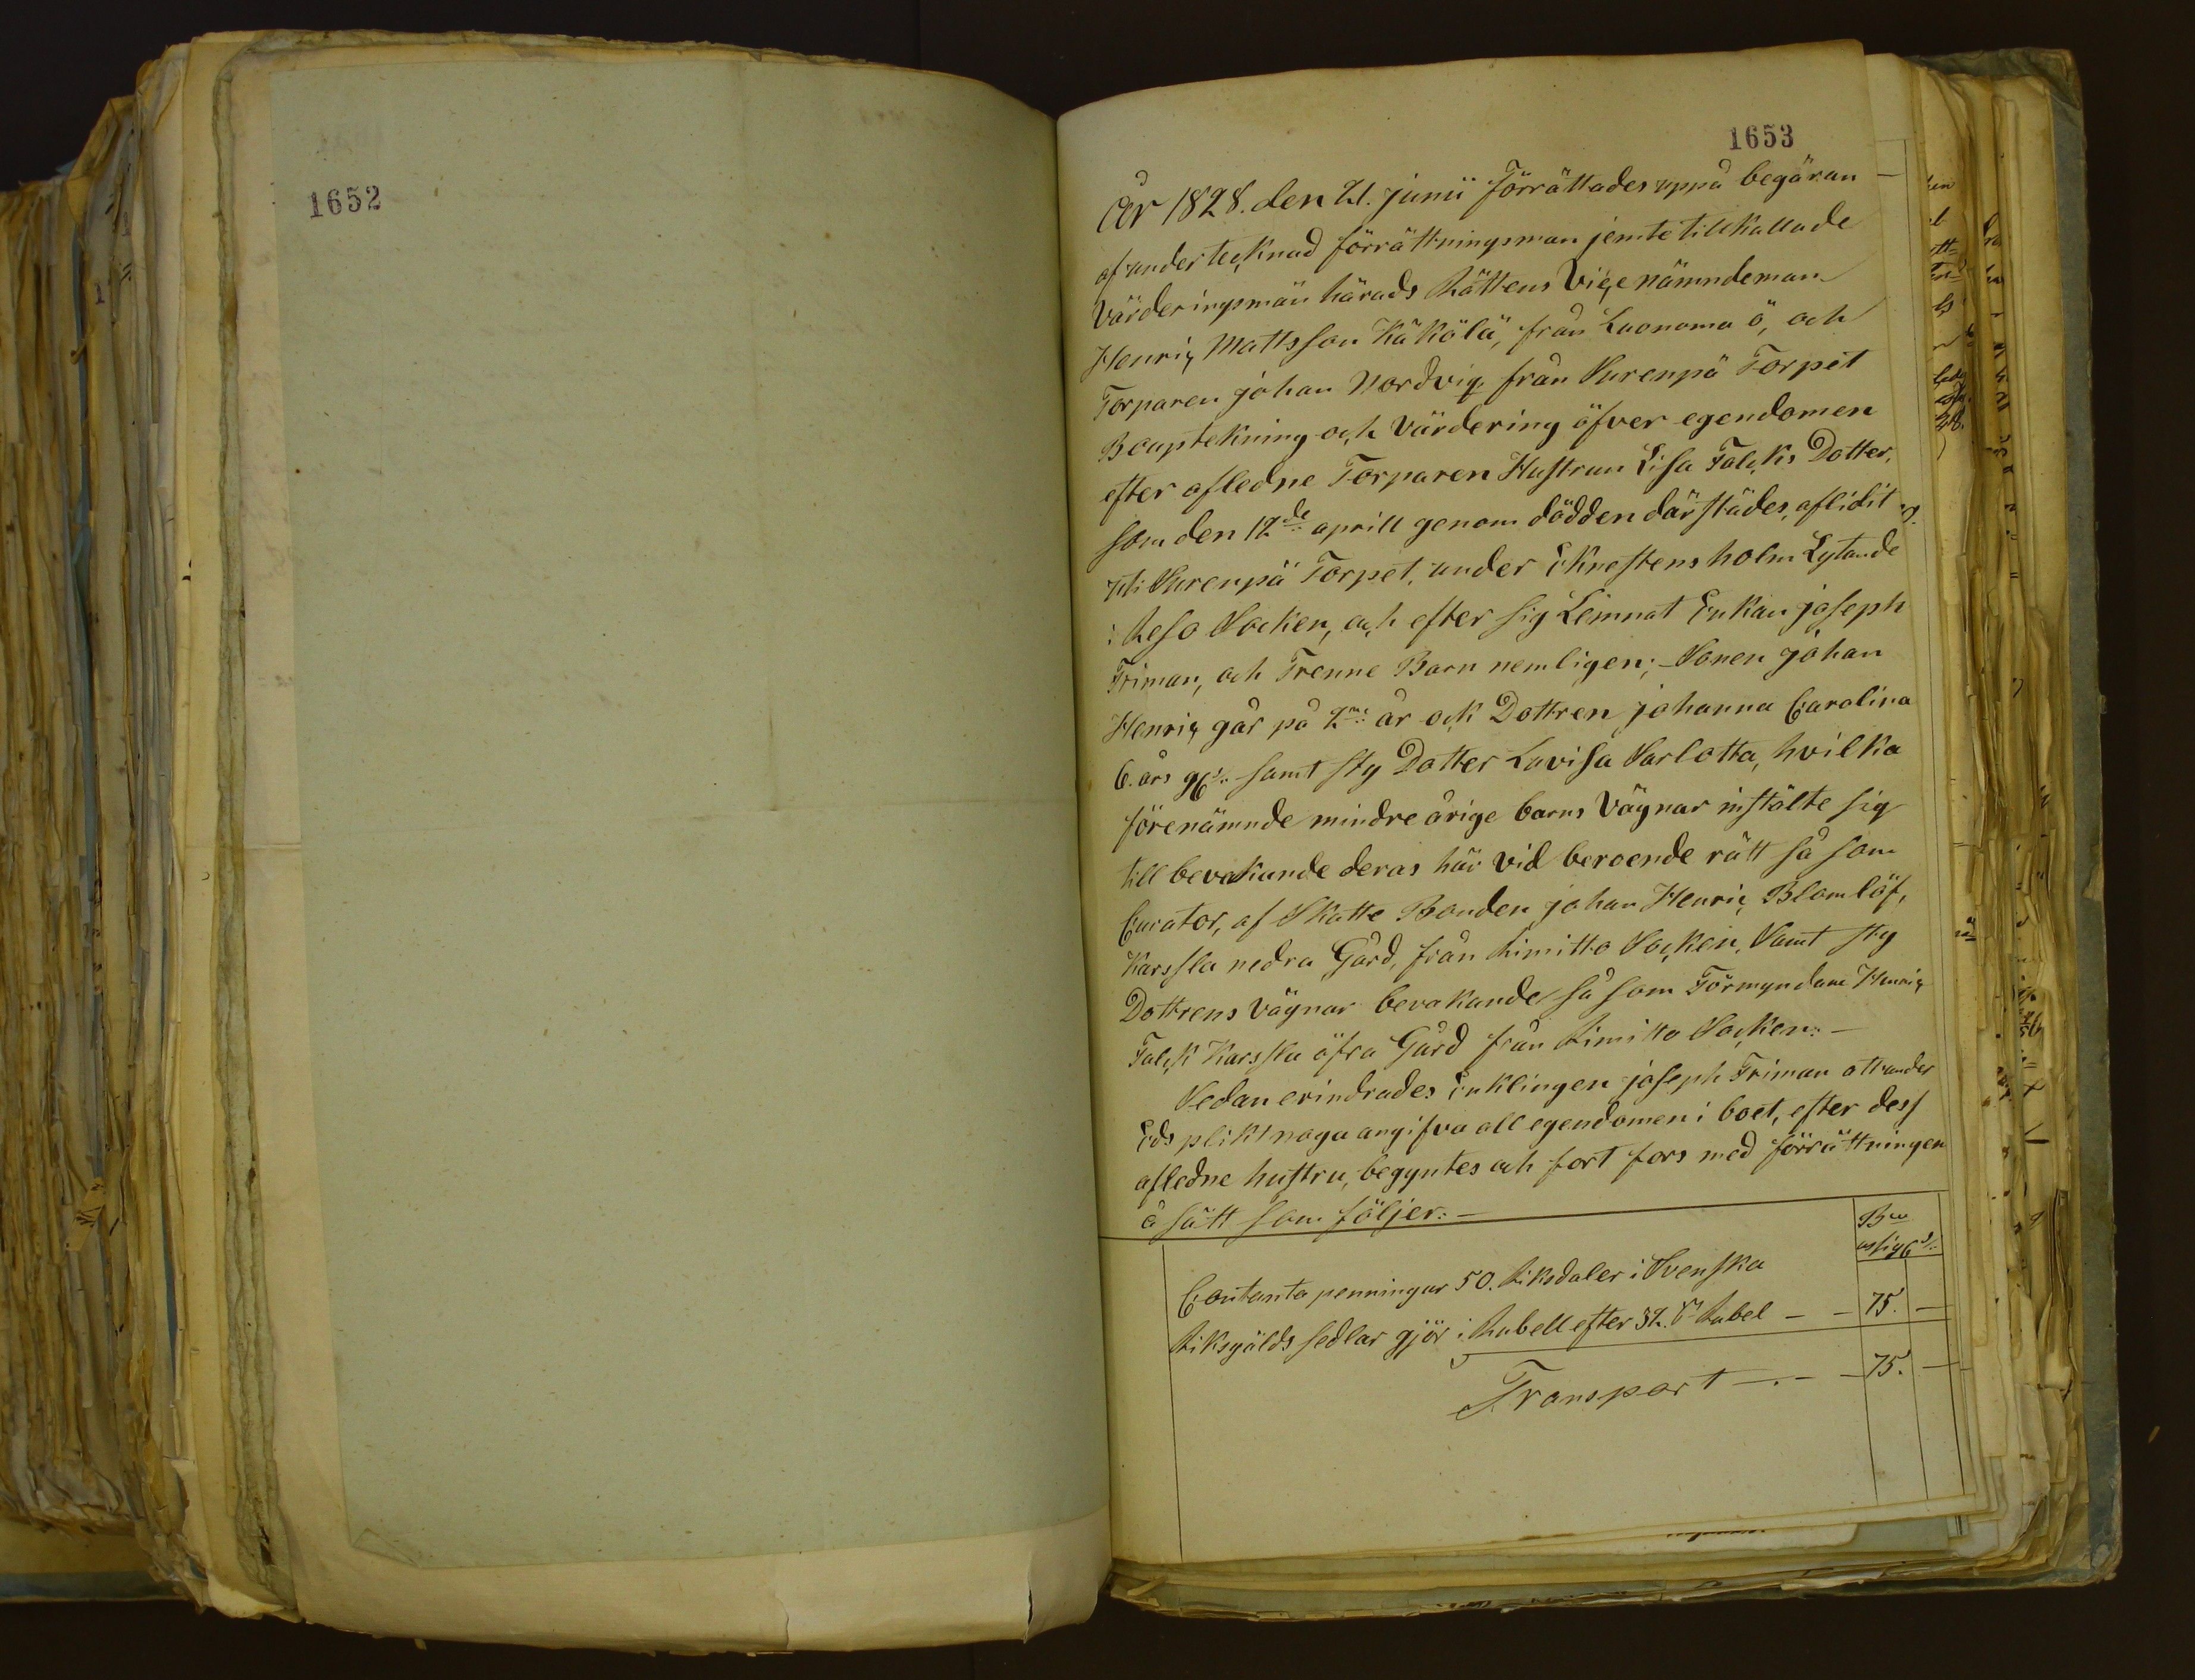 1652
1653
År 1828. den 21. junii förrättades uppå begäran
af undertecknad förrättningsman jemte tillkallade
Värderingsmän härads Rättens Vice nämndeman
Henric Mattsson Käkölä, från Luonoma ö, och
Torparen johan Nordviq från Surenpä Torpet
Bouptekning och Värdering öfver egendomen
efter afledne Torparen Hustrun Lisa Falcks Dotter,
som den 12de aprill genom dödden därstädes, aflidit
uti Surenpä Torpet, under Eknestensholm Lytande
i Reso Socken, och efter sig Lemnat Enkan joseph
Friman, och Trenne Barn nemligen; Sonen johan
Henric går på år ock Dottren johanna Carolina
6. års samt sty Dotter Lovisa Sarlotta, hvilka
förenämnde mindre årige barns Vägnar instälte sig
till bevakande deras här vid beroende rätt så som
Curator, af Skatte Bonden johan Henric Blomlöf,
Karssla nedra Gård, från Kimitto Socken, Samt sty
Dottrens Vägnar bevakande så som Förmyndare Henric
Falck Karssla öfra Gård från Kimitto Socken:-
Sedan erindrades Enklingen joseph Friman att under
Eds plikt noga angifva all egendomen i boet, efter dess
afledne hustru, begyntes och fort fors med förrättningen
å sätt som följer:-
Bco
Contanta penningar 50. Riksdaler i Svenska
Riksgälds sedlar gjör i Rubell efter Rubel - - 75. -
Transport - . - - 75. -